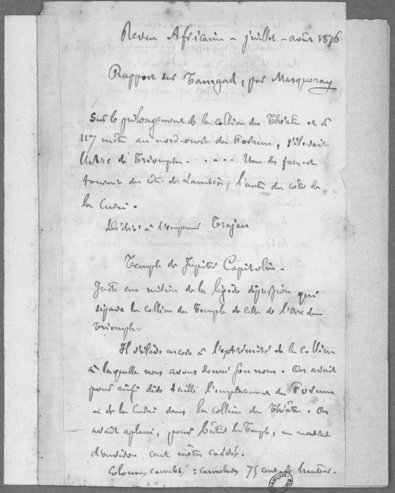 Revue Africaine - juillet - août 1876
Rapport sur Tamgad, par Masqueray
Sur le prolongement de la colline du Théâtre et à
117 mètres au nord-ouest du Forum, s'élevait
l'Arc de Triomphe. . . . . Une des faces est
tournée du côté de Lambèse, l'autre du côté de
la Curie.
Dédié à l'empereur Trajan
Temple de Jupiter Capitolin.
Juste au milieu de la légère dépression qui
sépare la colline du Temple de celle de l'Arc de
Triomphe
Il s'élève encore à l'extrémité de la colline
à laquelle nous avons donné son nom. On avait
pour ainsi dire taillé l'emplacement du Forum
et de la Curie dans la colline du Théâtre. On
avait aplani, pour bâtir le Temple, un
d'environ cent mètres carrés.
Colonnes : cannelures 75 cent. de hauteur.